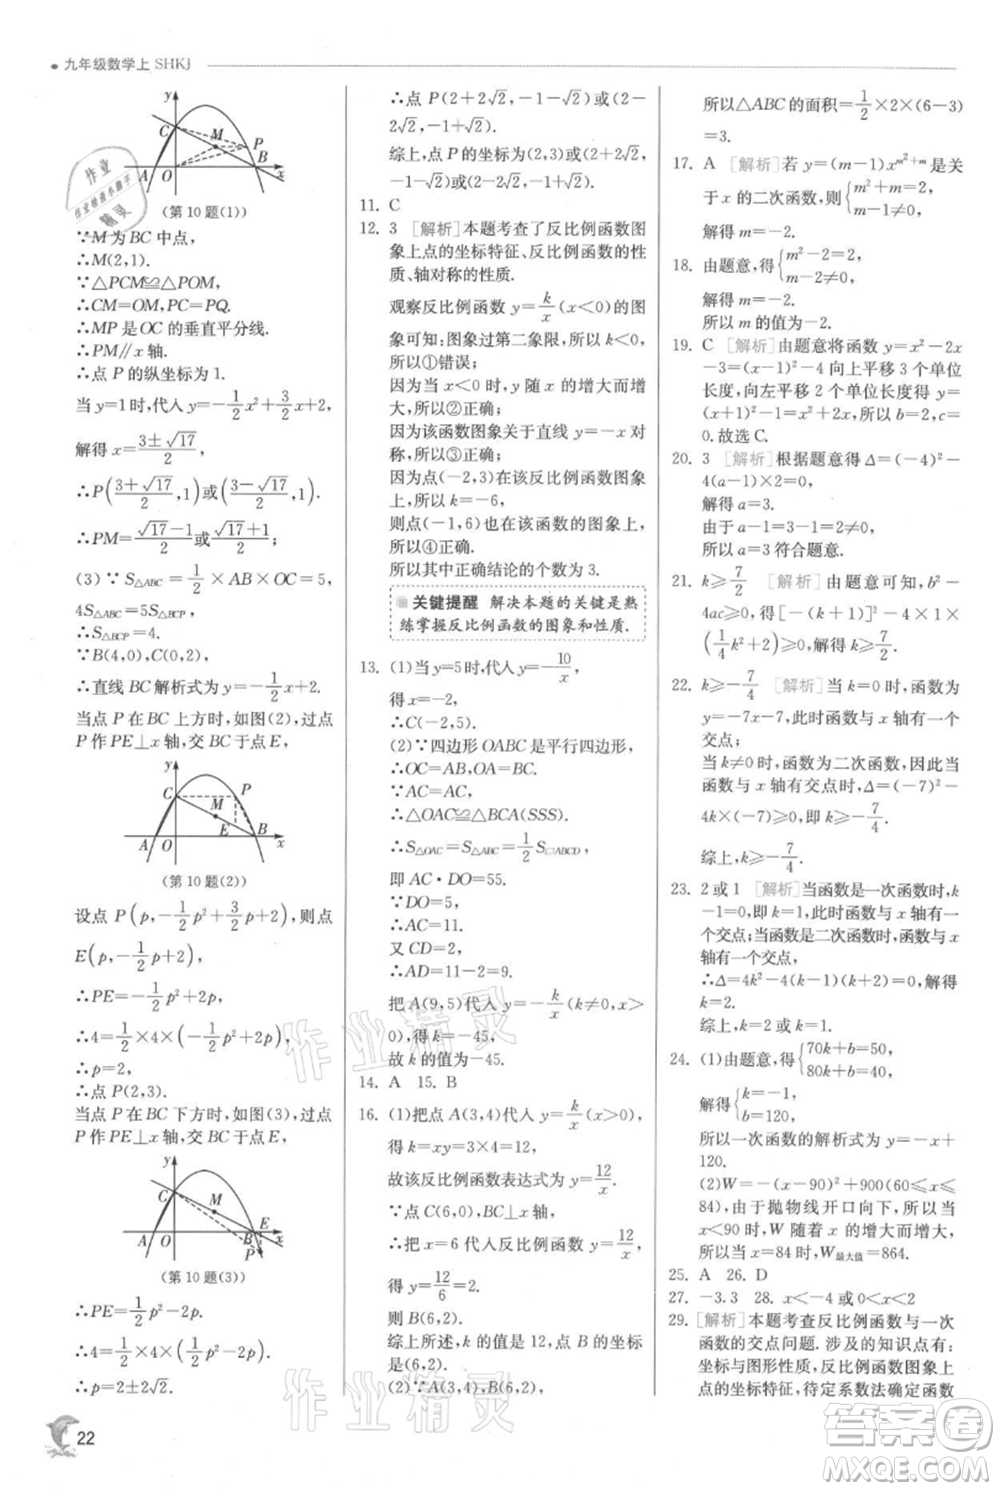 九年级数学上 SHKJ
y
C
M
P
A
O
B
x
(第10题(1))
∵M为BC中点,
∴M(2,1).
∵△PCM≌△POM,
∴CM=OM,PC=PQ.
∴MP是OC的垂直平分线.
∴PM//x轴.
∴点P的纵坐标为1.
当y=1时,代入y=-1/2x²+3/2x+2,
解得x=(3±√17)/2,
∴P((3+√17)/2,1)或((3-√17)/2,1).
∴PM=(√17-1)/2或(√17+1)/2;
(3)∵S△ABC=1/2×AB×OC=5,
4S△ABC=5S△BCP,
∴S△BCP=4.
∵B(4,0),C(0,2),
∴直线BC解析式为y=-1/2x+2.
当点P在BC上方时,如图(2),过点
P作PE⊥x轴,交BC于点E,
y
C
P
M
E
A
O
B
x
(第10题(2))
设点P(p,-1/2p²+3/2p+2),则点
E(p,-1/2p+2),
∴PE=-1/2p²+2p.
∴4=1/2×4×(-1/2p²+2p).
∴p=2.
∴点P(2,3).
当点P在BC下方时,如图(3),过点
P作PE⊥x轴,交BC于点E,
y
C
M
E
A
O
B
P
x
(第10题(3))
∴PE=1/2p²-2p.
∴4=1/2×4×(1/2p²-2p).
∴p=2±2√2.
∴点P(2+2√2,-1-√2)或(2-
2√2,-1+√2).
综上,点P的坐标为(2,3)或(2+
2√2,-1-√2)或(2-2√2,
-1+√2).
11. C
12. 3 [解析]本题考查了反比例函数图
象上点的坐标特征、反比例函数的性
质、轴对称的性质.
观察反比例函数y=k/x(x<0)的图
象可知:图象过第二象限,
所以①错误;
因为当x<0时,y随x的增大而增
大,所以②正确;
因为该函数图象关于直线y=-x对
称,所以③正确;
因为点(-2,3)在该反比例函数图象
上,所以k=-6,
则点(-1,6)也在该函数的图象上,
所以④正确.
所以其中正确结论的个数为3.
关键提醒 解决本题的关键是熟
练掌握反比例函数的图象和性质.
13. (1)当y=5时,代入y=-10/x,
得x=-2,
∴C(-2,5).
(2)∵四边形OABC是平行四边形,
∴OC=AB,OA=BC.
∵AC=AC,
∴△OAC≌△BCA(SSS).
∴S△OAC=S△ABC=1/2S□ABCD,
即AC·DO=55.
∵DO=5,
∴AC=11.
又CD=2,
∴AD=11-2=9.
把A(9,5)代入y=-k/x(k≠0,x>
0),得k=-45.
故k的值为-45.
14. A 15. B
16. (1)把点A(3,4)代入y=k/x(x>0),
得k=xy=3×4=12,
故该反比例函数表达式为y=12/x.
∵点C(6,0),BC⊥x轴,
∴把x=6代入反比例函数y=12/x,
得y=12/6=2.
则B(6,2).
综上所述,k的值是12,点B的坐标
是(6,2).
(2)∵A(3,4),B(6,2),C(6,0),
所以△ABC的面积=1/2×2×(6-3)
=3.
17. A [解析]若y=(m-1)x^(m²+m)是关
于x的二次函数,则{m²+m=2, m-1≠0,
解得m=-2.
18. 由题意,得{m²-2=2, m-2≠0,
解得m=-2.
所以m的值为-2.
19. C [解析]由题意将函数y=x²-2x
-3=(x-1)²-4向上平移3个单位
长度,向左平移2个单位长度得y=
(x+1)²-1=x²+2x,所以b=2,c=
0.故选C.
20. 3 [解析]根据题意得Δ=(-4)²-
4(a-1)×2=0,
解得a=3.
由于a-1=3-1=2≠0,
所以a=3符合题意.
21. k≥7/2 [解析]由题意可知,b²-
4ac≥0,得[-(k+1)]²-4×1×
(1/4k²+2)≥0,解得k≥7/2.
22. k≥-7/4 [解析]当k=0时,函数为
y=-7x-7,此时函数与x轴有一个
交点;
当k≠0时,函数为二次函数,若函数
与x轴有交点时,Δ=(-7)²-
4k×(-7)≥0,即k≥-7/4.
综上,k≥-7/4.
23. 2或1 [解析]当函数是一次函数时,k
-1=0,即k=1,此时函数与x轴有一
个交点;当函数是二次函数时,与x
轴有一个交点,
∴Δ=4k²-4(k-1)×4=0,解得
k=2.
综上,k=2或k=1.
24. (1)由题意,得{70k+b=50, 80k+b=40,
解得{k=-1, b=120,
所以一次函数的解析式为y=-x+
120.
(2)W=-(x-90)²+900(60≤x≤
84),由于抛物线开口向下,故当
x<90时,W随着x的增大而增大,
所以当x=84时,W最大值=864.
25. A 26. D
27. -3.3 28. x<-4或0<x<2
29. [解析]本题考查反比例函数与一次
函数的交点问题.涉及的知识点有:
坐标与图形性质,反比例函数图象上
点的坐标特征,待定系数法确定函数
22
作业精灵
作业精灵
答案卷